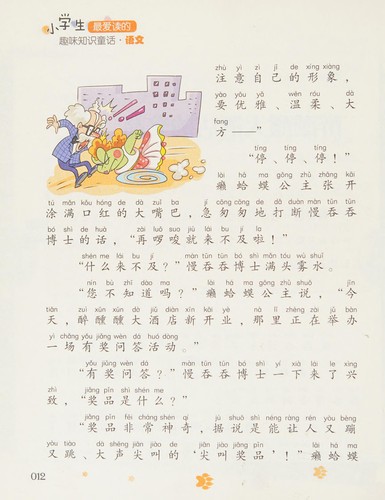 小学生
最爱读的
趣味知识童话·语文
zhù yì zì jǐ de xíng xiàng
注意自己的形象，
yào yōu yǎ wēn róu dà
要优雅、温柔、大
fang
方——”
tíng tíng tíng
“停、停、停！”
lài há ma gōng zhǔ zhāng kāi
癞蛤蟆公主张开
tú mǎn kǒu hóng de dà zuǐ ba jí cōng cōng de dǎ duàn màn tūn tūn
涂满口红的大嘴巴，急匆匆地打断慢吞吞
bó shì de huà zài luō suo jiù lái bu jí la
博士的话，“再啰唆就来不及啦！”
shén me lái bu jí màn tūn tūn bó shì mǎn tóu wù shuǐ
“什么来不及？”慢吞吞博士满头雾水。
nín bù zhī dào ma lài há ma gōng zhǔ shuō jīn
“您不知道吗？”癞蛤蟆公主说，“今
tiān zuì xūn xūn dà jiǔ diàn xīn kāi yè nà lǐ zhèng zài jǔ bàn
天，醉醺醺大酒店新开业，那里正在举办
yì chǎng yǒu jiǎng wèn dá huó dòng
一场有奖问答活动。”
yǒu jiǎng wèn dá màn tūn tūn bó shì yí xià lái le xìng
“有奖问答？”慢吞吞博士一下来了兴
zhì jiǎng pǐn shì shén me
致，“奖品是什么？”
jiǎng pǐn fēi cháng shén qí jù shuō shì néng ràng rén yòu bèng
“奖品非常神奇，据说是能让人又蹦
yòu tiào dà shēng jiān jiào de jiān jiào jiǎng pǐn lài há ma
又跳、大声尖叫的‘尖叫奖品’！”癞蛤蟆
012